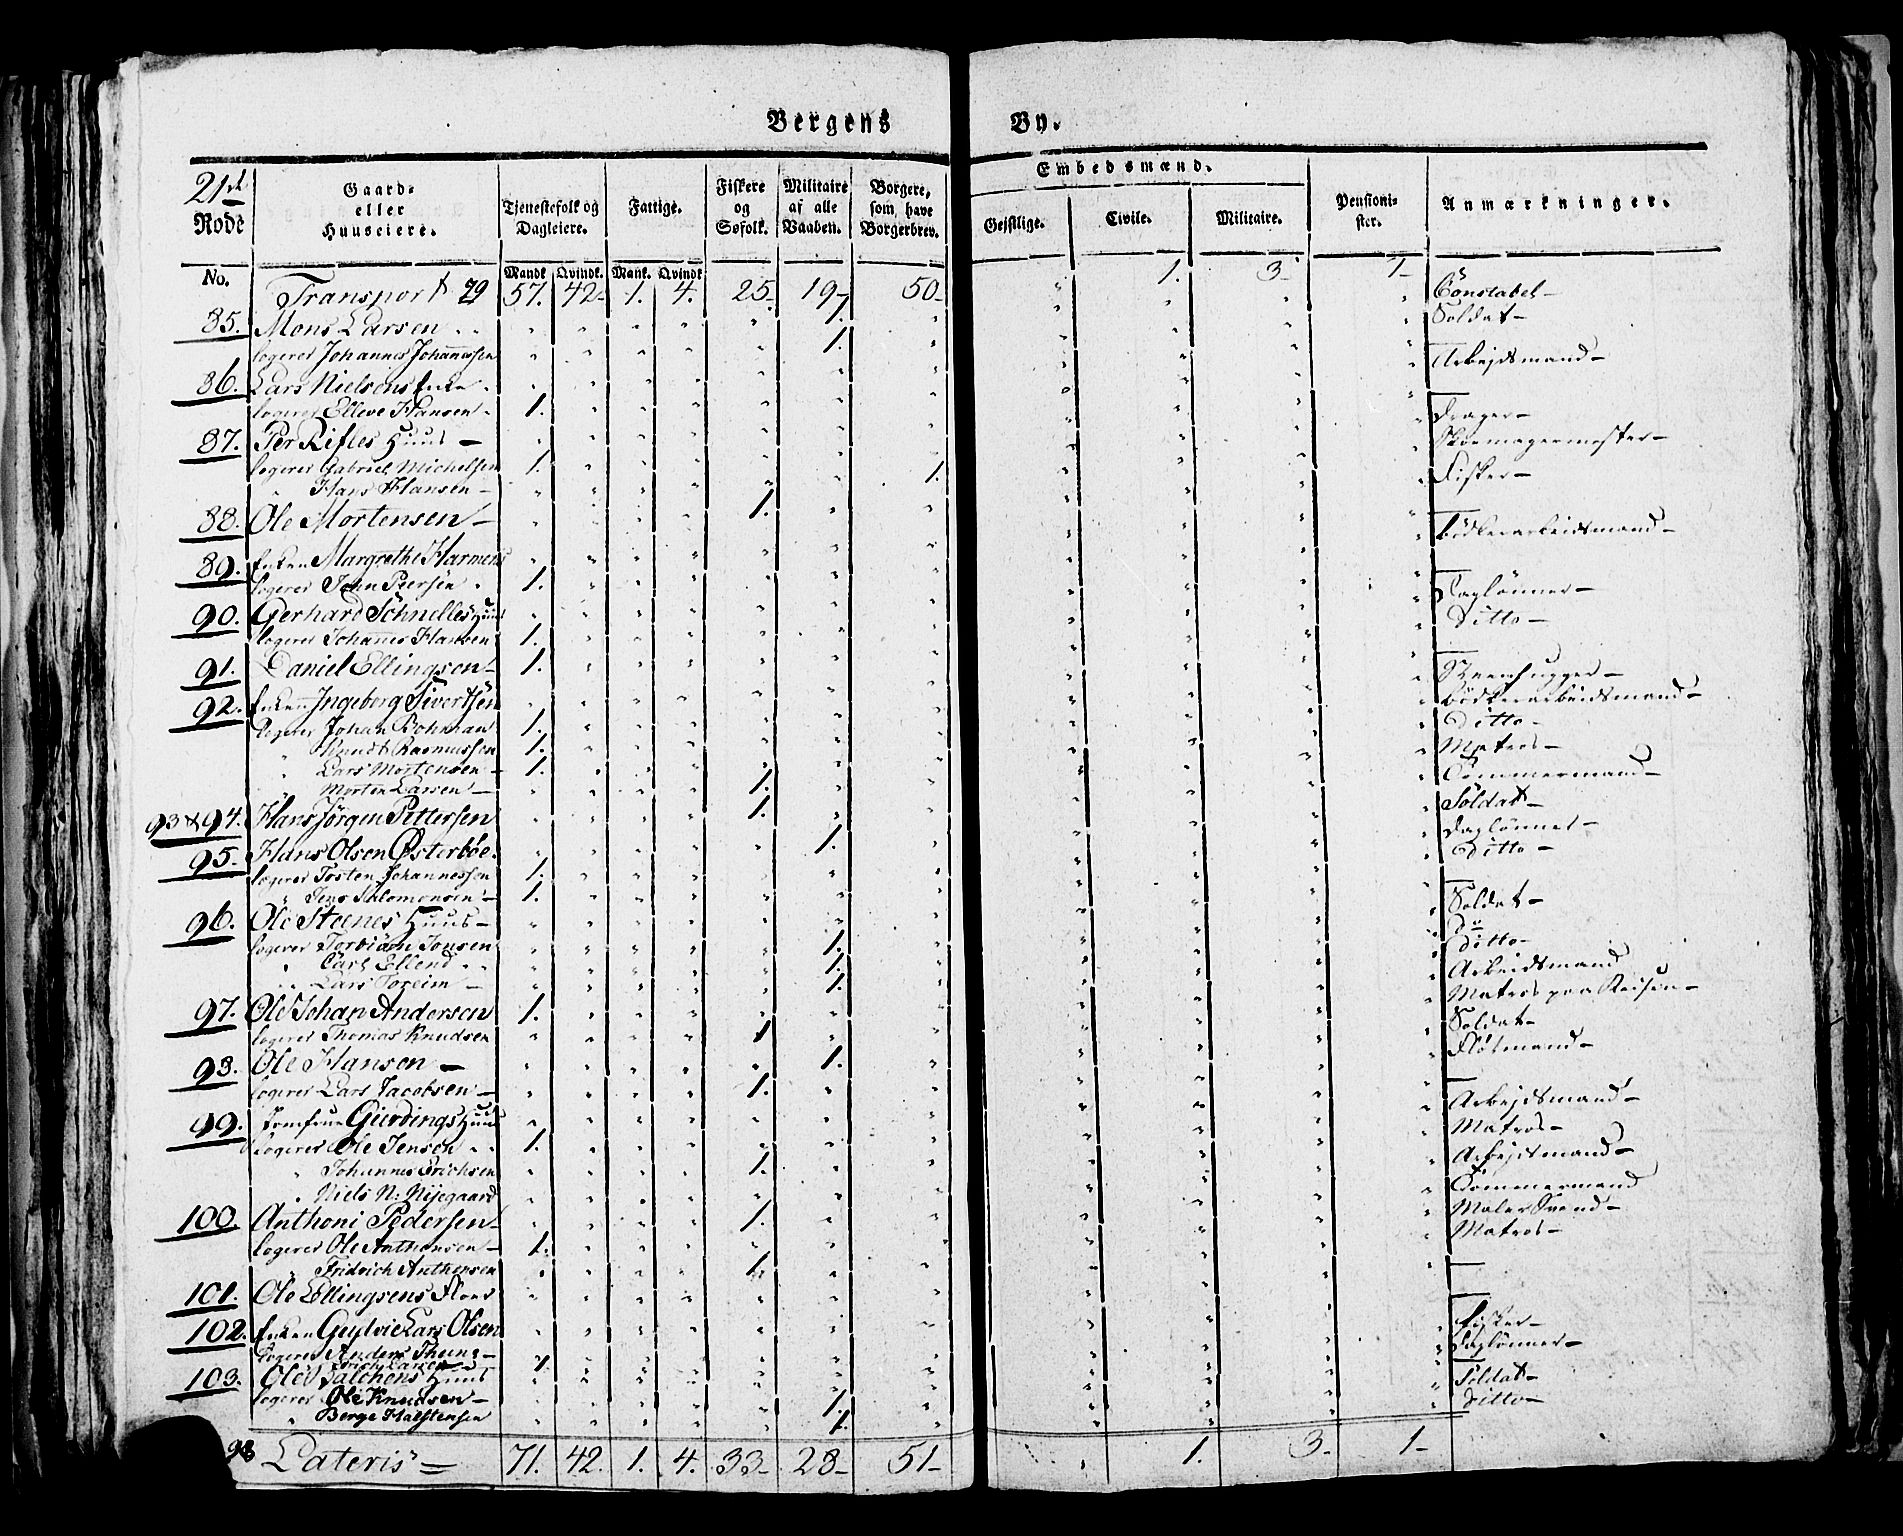 Bergens By.
21de Rode
Gaard- eller Huuseiere.
Tjenestefolk og Dagleiere.
Fattige.
Fiskere og Søfolk.
Militaire af alle Vaaben.
Borgere, som have Borgerbrev.
Embedsmænd.
Gejstlige. Civile. Militaire.
Pensionister.
Anmærkninger.
No. Mandk. Qvindk. Mank. Qvindk.
Transport 79 57. 42- 1. 4. 25- 19- 50- " 1. 3- 1-
85. Mons Larsen 1. Constabel-
logerer Johannes Johannssen 1. Soldat-
86. Lars Nielsens Enke
logerer Elleve Hansen 1. Arbejdsmand-
87. Per Rifles Huus-
logerer Gabriel Michelsen 1. Drager-
" Hans Hansen- 1. Skoemagermester-
88. Ole Mortensen- 1. Fisker-
89. Enken Margrethe Harmens
logerer John Peersen 1. Bødkerarbeidsmand-
90. Gerhard Schnelles Huus
logerer Johannes Hansen 1. Daglønner-
91. Daniel Ellingsen- 1. Ditto-
92. Enken Ingeborg Sivertsen
logerer Johan Bohman 1. Steenhugger-
" Knudt Rasmussen 1. Bødkerarbeidsmand-
" Lars Mortensen- 1. Ditto-
" Morten Larsen- 1. Matros-
93 & 94. Hans Jørgen Pettersen 1. Tømmermand-
95. Hans Olsen Østerbøe. 1. Soldat-
logerer Tosten Johannessen 1. Daglønner-
" Jens Salomonsen- 1. Ditto-
96. Ole Steenes Huus-
logerer Torbiörn Jonsen 1. Soldat-
" Carl Ellend 1. Do
" Lars Toreim- 1. Ditto-
97. Ole Johan Andersen 1. Arbeidsmand
logerer Thomas Knudsen 1 Matros paa Reisen-
98. Ole Hansen- 1. Soldat-
logerer Lars Jacobsen- 1. Fløtmand-
99. Jomfrue Giördings Huus
logerer Ole Jensen 1. Arbejdsmand-
" Johannes Erichsen 1. Matros-
" Niels N: Nyegaard Arbejdsmand-
100. Anthoni Pedersen- 1. Tømmermand
logerer Ole Anthonsen- 1. Maler Svend-
Fridrich Anthonsen 1. Matros-
101. Ole Ellingsens
102. Enken Lars Olsen
logerer Anders Thune- Fisker-
Erich Larsen 1. Daglønner-
103. Ole Huus
logerer Ole Knudsen- 1. Soldat-
" Berge Halstensen 1. Ditto-
98 Lateris- 71. 42. 1. 4. 33- 28- 51- " 1. 3- 1-